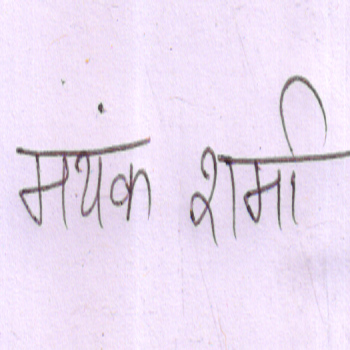 मयंक शर्मा